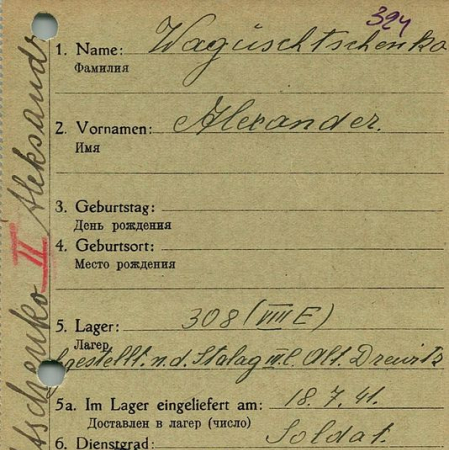 324
1. Name: Wagüschtschenko
Фамилия
2. Vornamen: Alexander.
Имя
3. Geburtstag:
День рождения
4. Geburtsort:
Место рождения
5. Lager: 308 (VIII E)
Лагер
gestellt. n.d. Stalag III C. Alt. Drewitz
5a. Im Lager eingeliefert am: 18.7.41.
Доставлен в лагер (число)
6. Dienstgrad: Soldat.
tschenko II Aleksandr